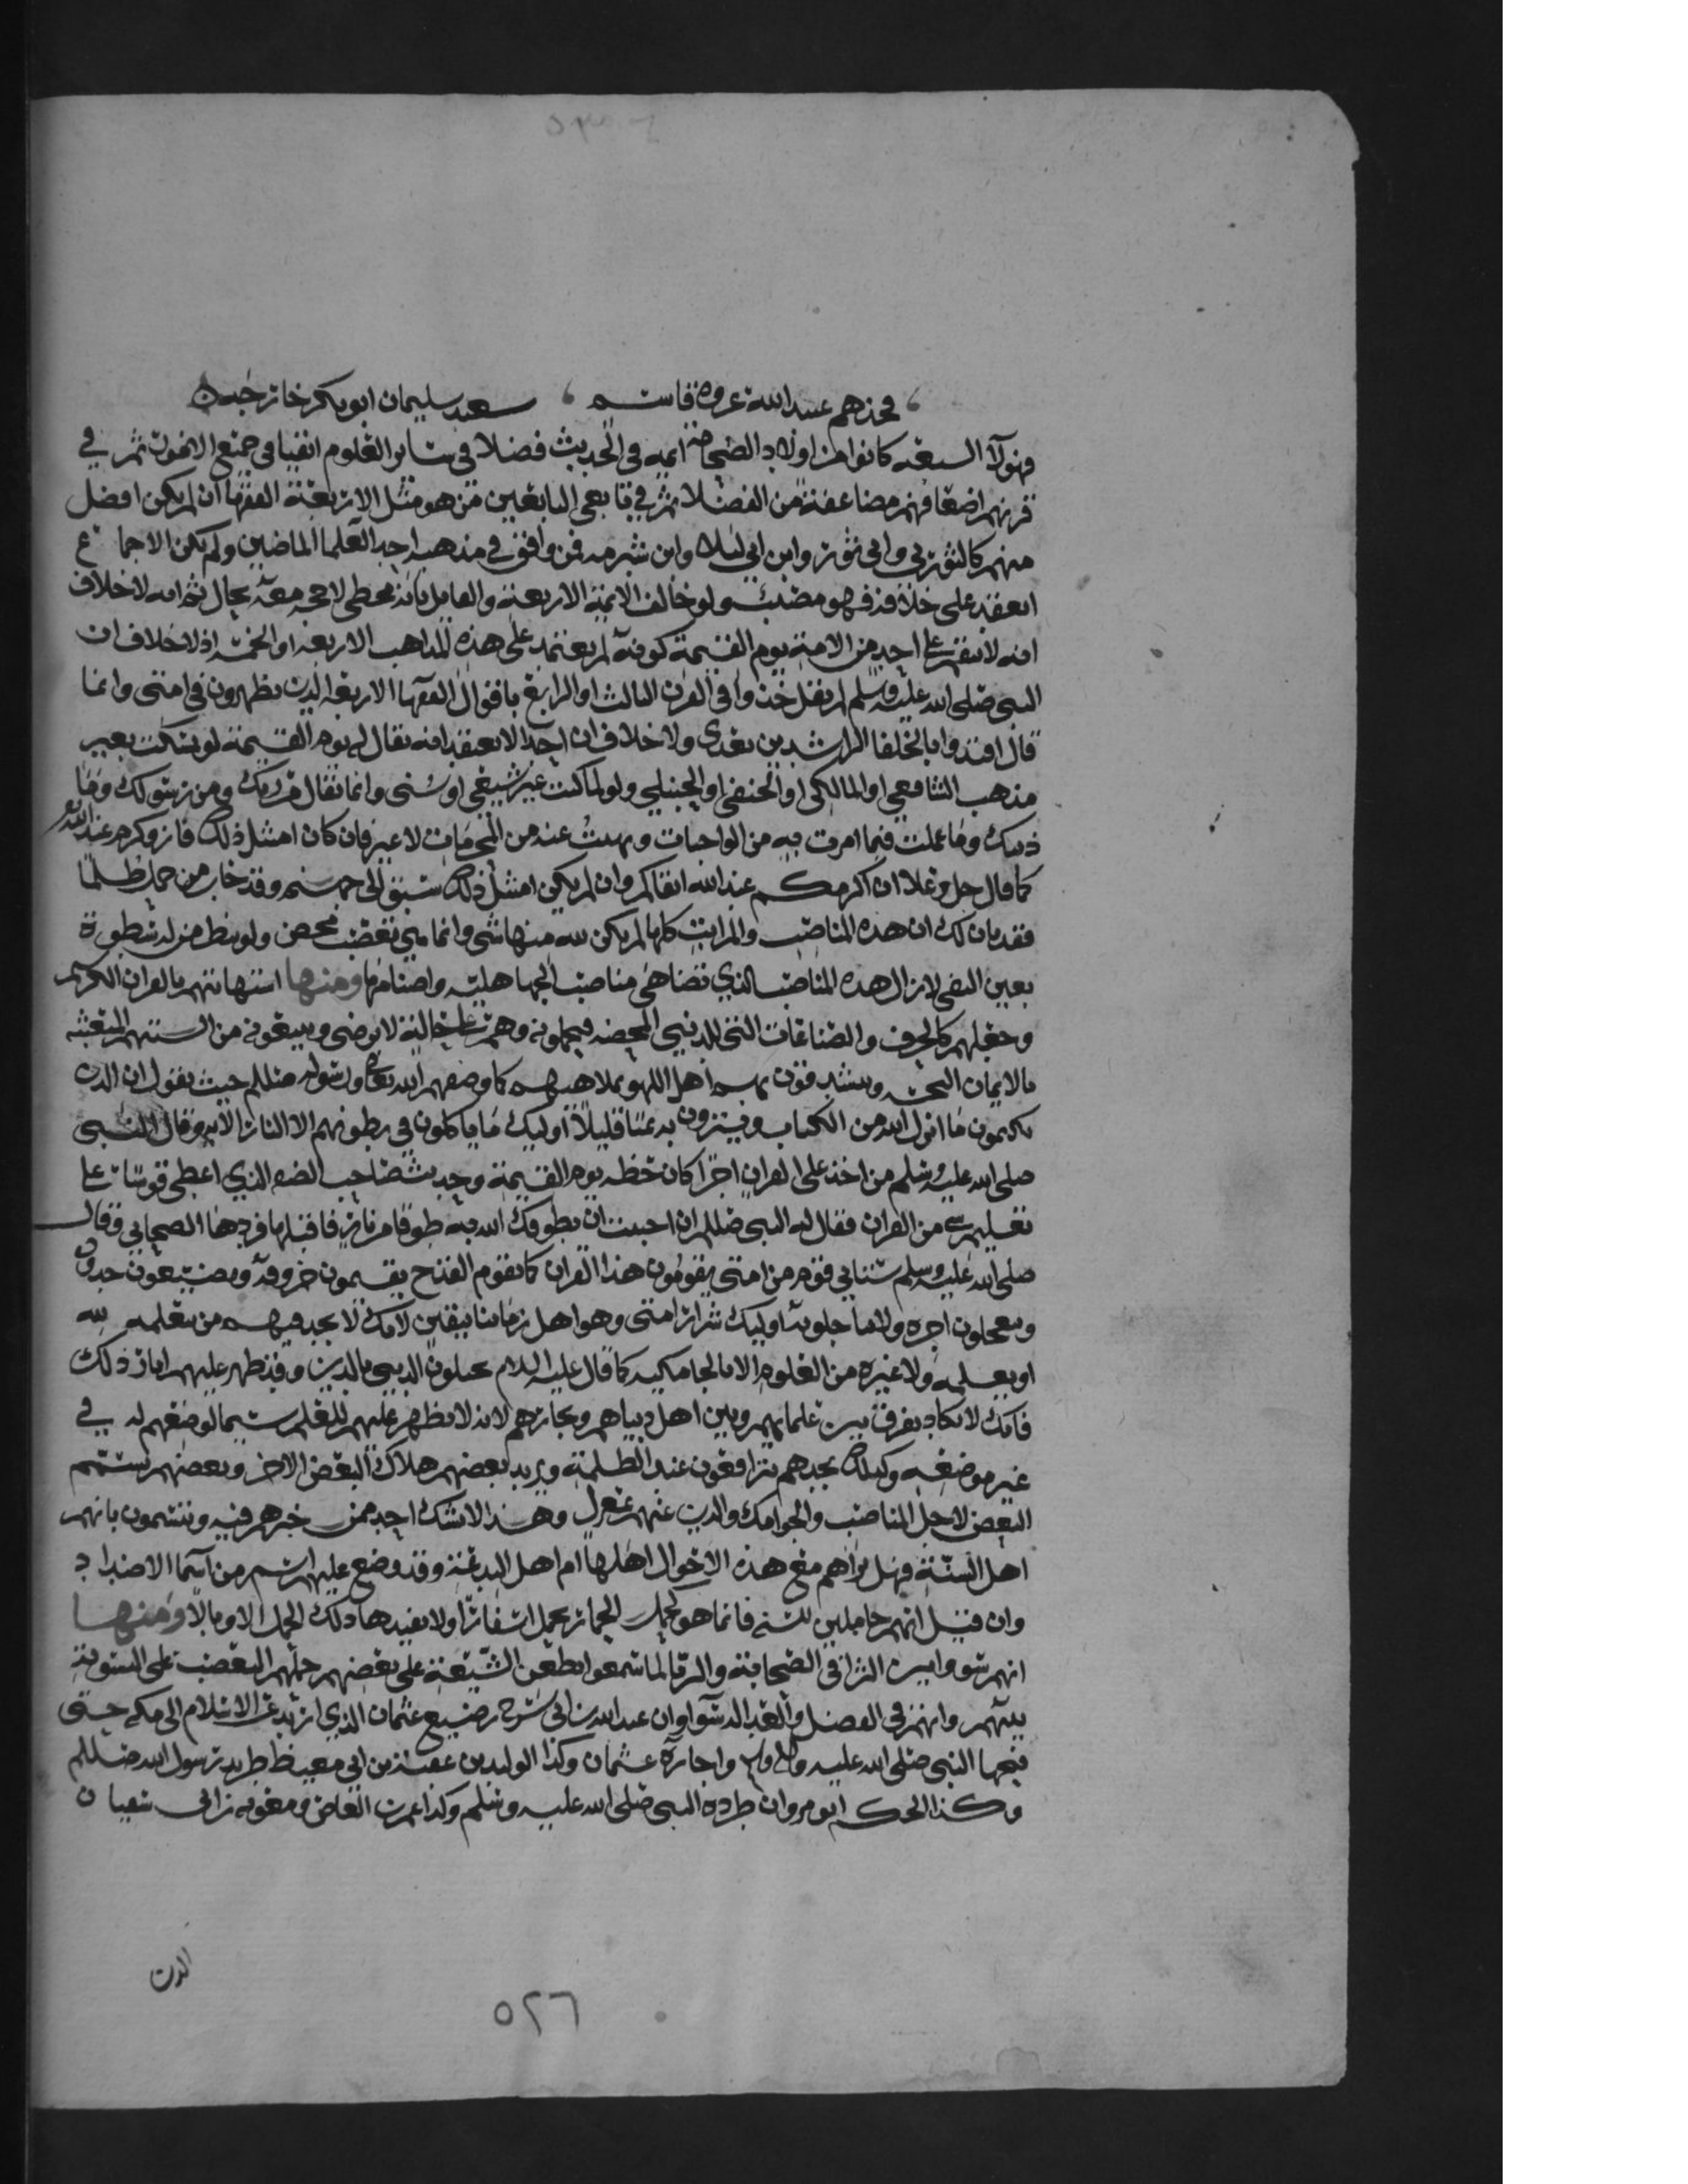 فخذهم عبيد الله عروة قاسم ، سعيد سليمان ابو بكر خارجه ه
فهولآ السبعه كانوا من اولاد الصحابه ايمه في الحديث فضلا في ساير العلوم اتقيا في جميع الامور ثم في
قرنهم اضعافهم مضاعفة من الفضلا ثم في تابعي التابعين من هو مثل الاربعة الفقها ان لم يكن افضل
منهم كالثوري وابي ثور وابن ابي ليلا وابن شبرمه فمن وافق في مذهب احد العلما الماضين ولم يكن الاجماع
انعقد على خلافه فهو مصيب ولو خالف الائمة الاربعة والقايل بانه مخطي لا حجه معه بحال ثم انه لا خلاف
انه لا ينقم على احد من الامة يوم القيمة كونه لم يعتمد على هذه المذاهب الاربعه او الخمسه اذ لا خلاف ان
النبي صلى الله عليه وسلم لم يقل خذوا في القرن الثالث او الرابع باقوال الفقها الاربعه الذين يظهرون في امتي وانما
قال اقتدوا بالخلفا الراشدين بعدي ولا خلاف ان احدا لا يعتقد انه يقال له يوم القيمة لو تمسكت بغير
مذهب الشافعي او المالكي او الحنفي او الحنبلي ولو لما كنت غير شيعي او سني وانما يقال من ربك ومن رسولك وما
دينك وما عملت فيما امرت به من الواجبات ونهيت عنه من المحرمات لا غير فان كان امتثل ذلك فاز وكرم عند الله
كما قال جل وعلا ان اكرمكم عند الله اتقاكم وان لم يكن امتثل ذلك سيق الى جهنم وقد خاب من حمل ظلما
فقد بان لك ان هذه المناصب والمراتب كلها لم يكن لله منها شي وانما هي تعصب محض ولو نظر من له سطوة
بعين التقى لازال هذه المناصب الذي تضاهي مناصب الجاهليه واصنامها ومنها استهانتهم بالقران الكريم
وجعلهم كالحرف والصناعات التي للدنيى المحضه فيجعلونه وهم على حالة لا ترضى ويبيعونه من السنتهم المتعبثه
بالايمان ويستبقون به اهل اللهو بملاهيهم كما وصفهم الله تعالى ورسوله صللم حيث يقول ان الذين
يكتمون ما انزل الله من الكتاب ويشترون به ثمنا قليلا اوليك ما ياكلون في بطونهم الا النار الآيه وقال النبي
صلى الله عليه وسلم من اخذ على القران اجرا كان حظه يوم القيمة وحديث صاحب الصفه الذي اعطي قوسا على
تعليم شي من القران فقال له النبي صللم ان احببت ان يطوقك الله به طوقا من نار فاقبلها فردها الصحابي وقال
صلى الله عليه وسلم سياتي قوم من امتي يقومون هذا القران كما يقوم القدح يقيمون حروفه ويضيعون حدوده
ويعجلون اجره ولا يتاجلونه اوليك شرار امتي وهو اهل زماننا بيقين لانك لا تجد فيهم من يتعلمه لله
او يعلمه ولا غيره من العلوم الا بالجامكيه كما قال عليه السلام يحتلون الدنيى بالدين وقد ظهر عليهم امارة ذلك
فانك لا تكاد تفرق بين علمايهم وبين اهل دنياهم وتجارهم لانه لا يظهر عليهم للعلم سيما لوضعهم له في
غير موضعه وكذلك تجدهم يترافعون عند الظلمة ويريد بعضهم هلاك البعض الاخر وبعضهم يشتم
البعض لاجل المناصب والجوامك والدين عنهم بمعزل وهذا لا يشك احد ممن خبرهم فيه ويتسمون بانهم
اهل السنة فهل تراهم مع هذه الاحوال اهلها ام اهل البدعة وقد وضع عليهم اسم من اسما الاضداد
وان قيل انهم حاملين للسنه فانما هو كحمل الحمار يحمل اسفارا ولا يفيدها ذلك الحمل الا وبالا ومنها
انهم سووا بين الثرا في الصحابة والثريا لما سمعوا بطعن الشيعة على بعضهم حملهم التعصب على التسوية
بينهم وانهم في الفضل والعداله سوآ وان عبد الله بن ابي سرح رضيع عثمان الذي ارتد عن الاسلام الى مكه حتى
فتحها النبي صلى الله عليه واله وسلم واجاره عثمان وكذا الوليد بن عقبة بن ابي معيط طريد رسول الله صللم
وكذا الحكم ابو مروان طرده النبي صلى الله عليه وسلم وكذا عمرو بن العاص ومعويه بن ابي سفيان
الذين
٥٢٦